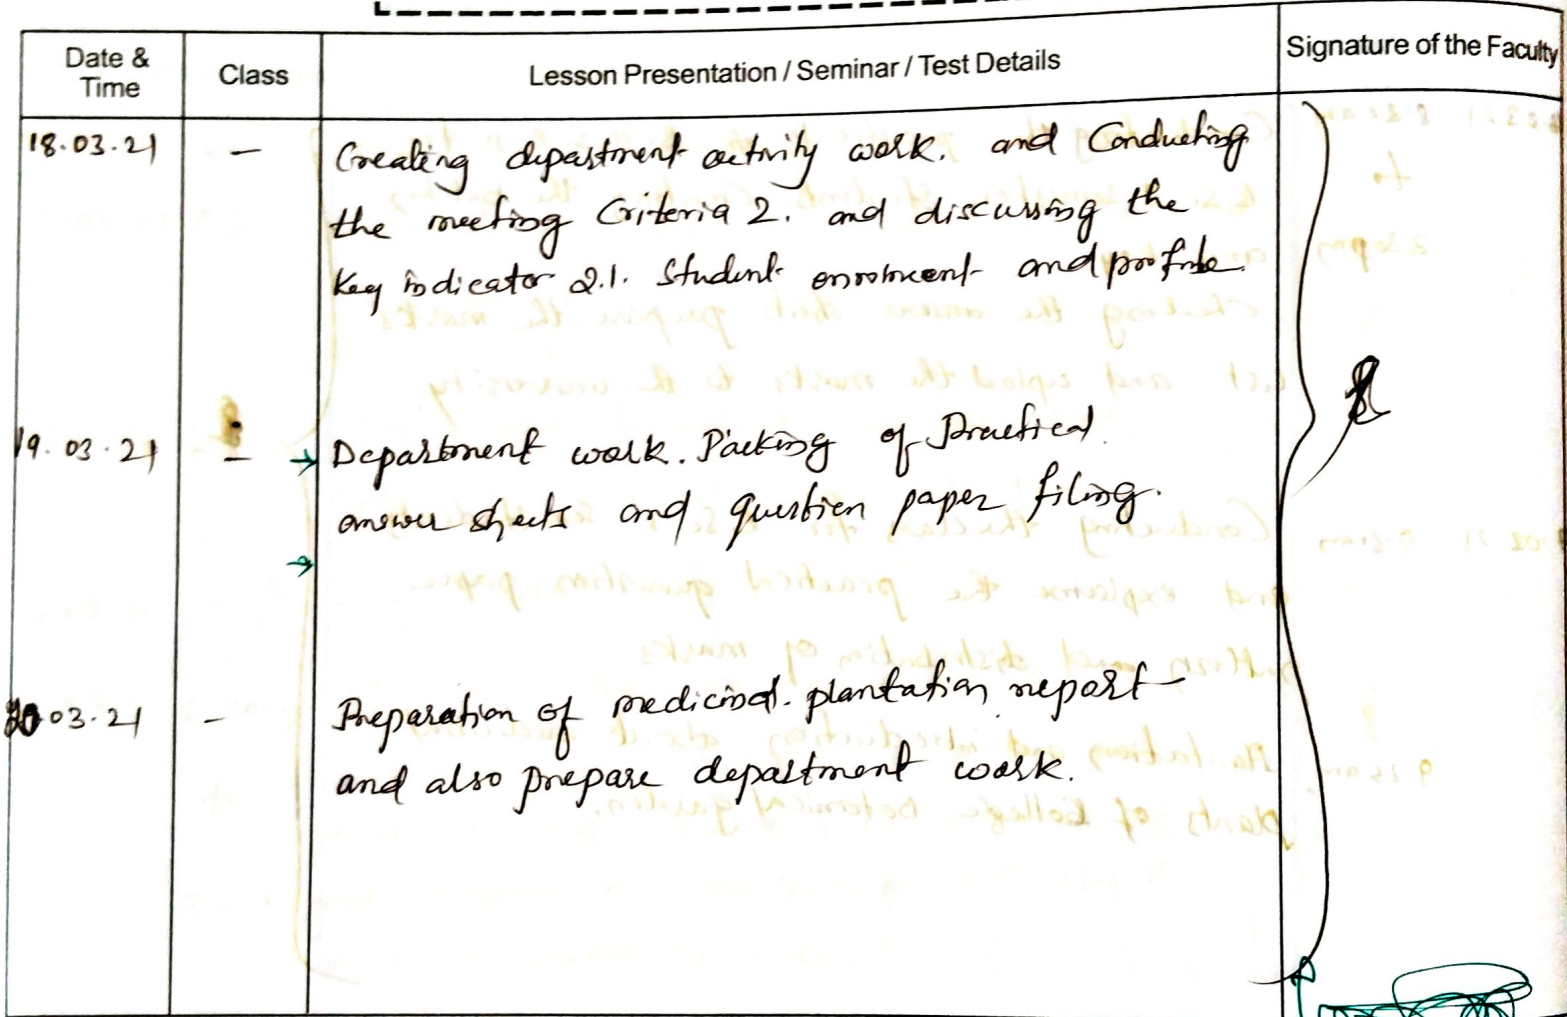 Date & Time
Class
Lesson Presentation / Seminar / Test Details
Signature of the Faculty
18.03.21 – Creating department activity work. and Conducting
the meeting Criteria 2. and discussing the
Key indicator 2.1. Student enrolment and profile.
19.03.21 – Department work. Packing of Practical
answer sheets and question paper filing.
20.03.21 – Preparation of medicinal plantation report
and also prepare department work.